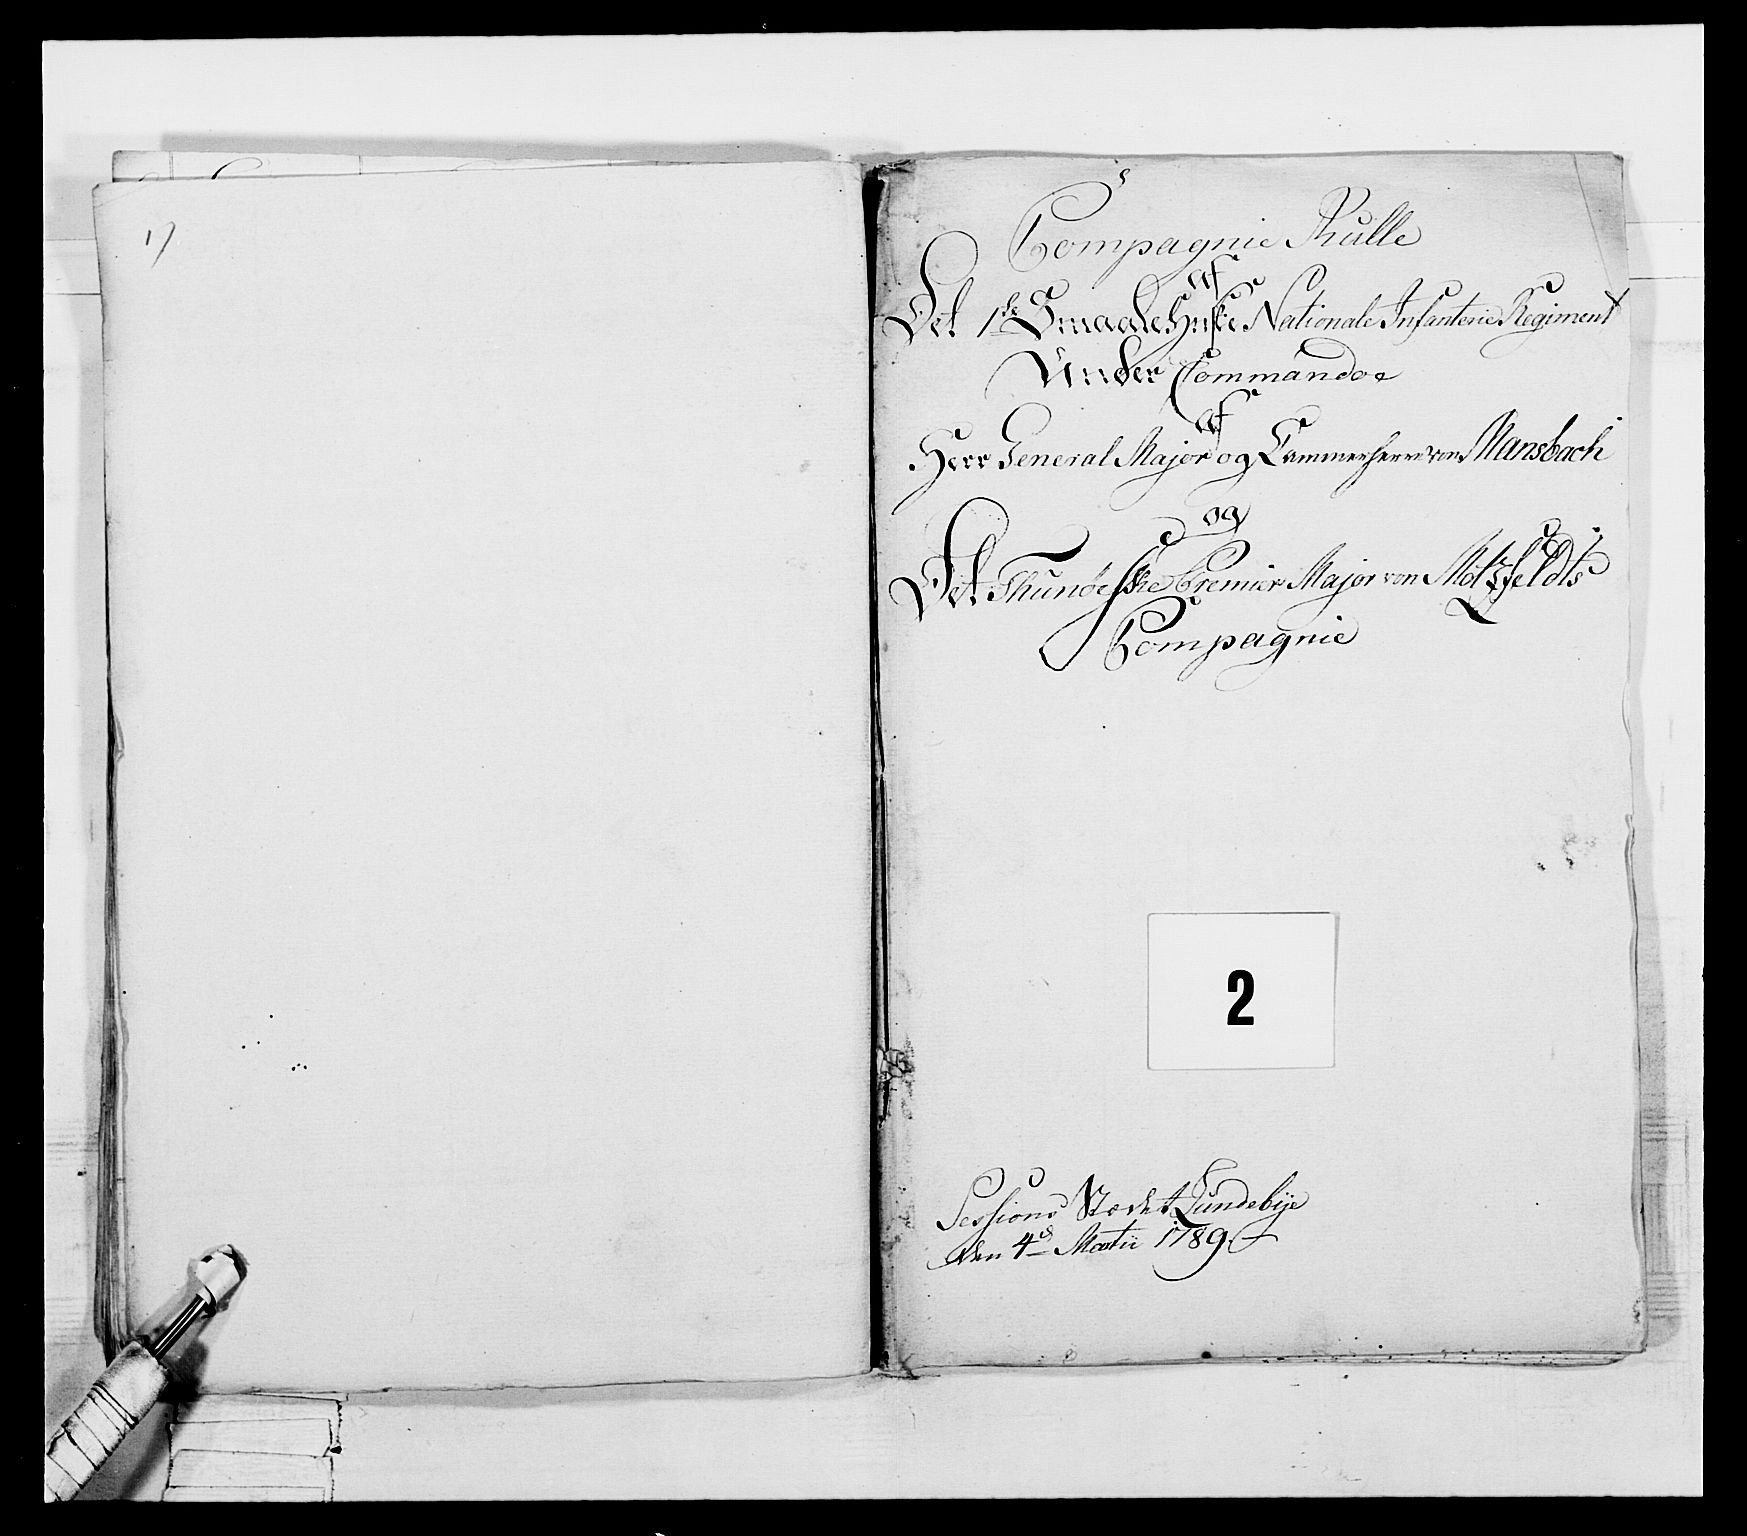 17
Compagnie Rulle
af
Det 1ste Smaalehnske Nationale Infanterie Regiment
Under Commandoe
af
Herr General Major og Cammerherre von Mansbach
og
Det Thunöeske Premier Major von Motzfeldts
Compagnie
2
Sessions Stædet Lundebÿe
den 4d Martii 1789